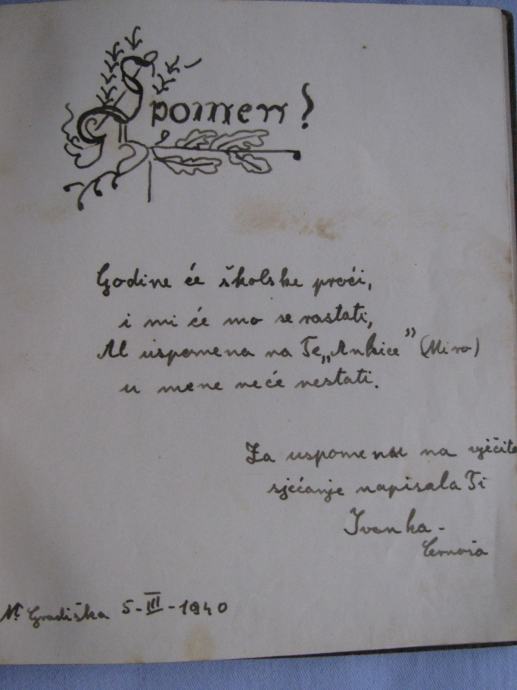 Spomen!
Godine će školske proći,
i mi će mo se rastati,
Al uspomena na Te „Ankice” (Miro)
u mene neće nestati.
Za uspomenu na vječito
sjećanje napisala Ti
Ivanka
N. Gradiška 5-III-1940